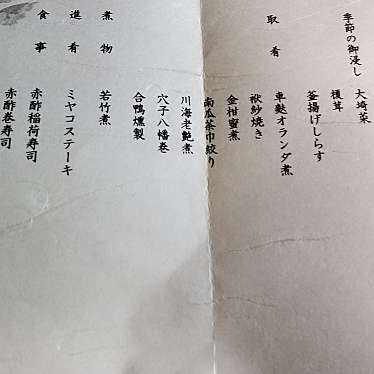 季節の御浸し
大埼菜
榎茸
釜揚げしらす
取肴
車麩オランダ煮
袱紗焼き
金柑蜜煮
南瓜茶巾絞り
川海老艶煮
穴子八幡巻
合鴨燻製
煮物
若竹煮
進肴
ミヤコステーキ
食事
赤酢稲荷寿司
赤酢巻寿司